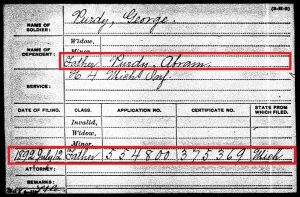 (3-M-2)
NAME OF SOLDIER: Purdy, George.
NAME OF DEPENDENT: Widow,
Minor,
Father Purdy, Abram.
SERVICE: 4 Mich Inf.
DATE OF FILING. CLASS. APPLICATION NO. CERTIFICATE NO. STATE FROM WHICH FILED.
Invalid,
Widow,
Minor,
1892 July 12 Father 554800 375369 Mich.
ATTORNEY:
REMARKS: